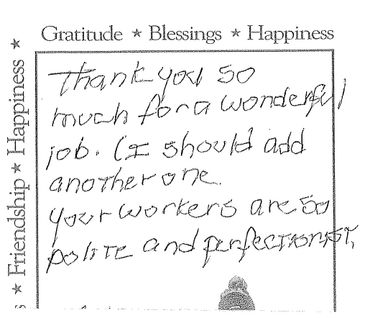 Gratitude ★ Blessings ★ Happiness
★ Friendship ★ Happiness ★
Thank you so
much for a wonderful
job. (I should add
another one.
your workers are so
polite and perfectionist,